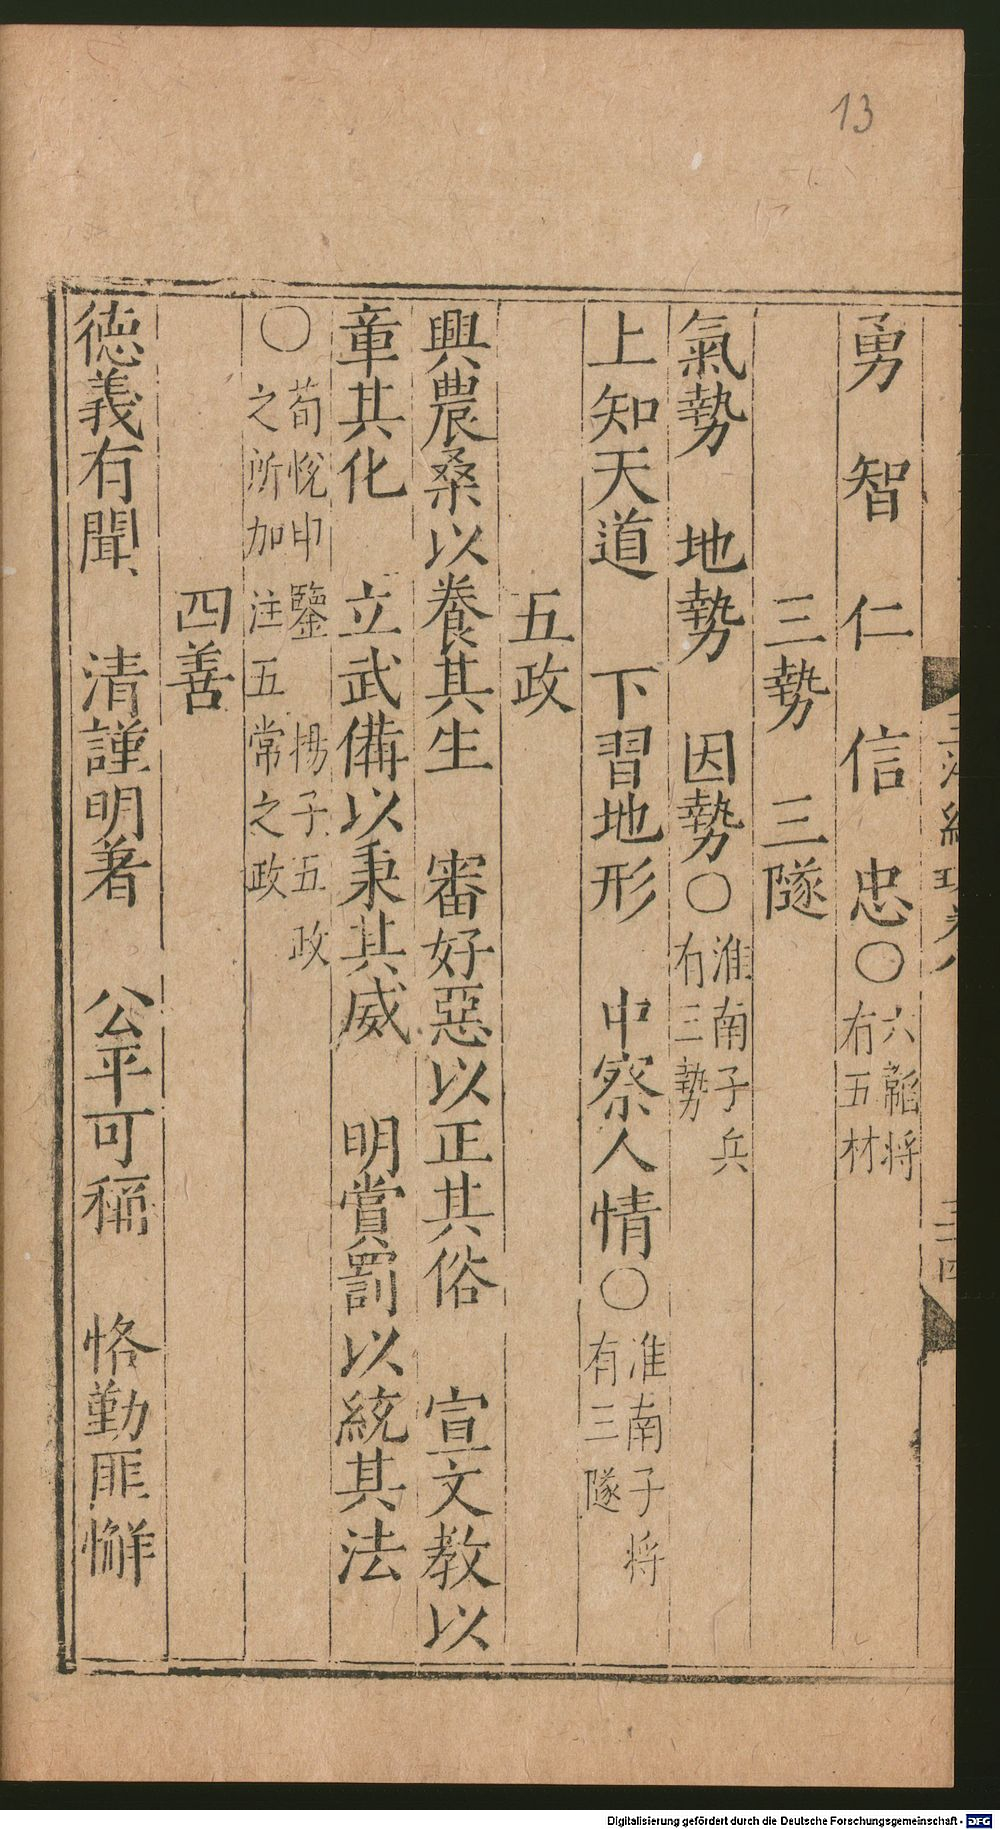 13
勇　智　仁　信　忠〇六韜将
有五材
三勢　三隧
氣勢　地勢　因勢〇淮南子兵
有三勢
上知天道　下習地形　中察人情〇淮南子将
有三隧
五政
興農桑以養其生　審好惡以正其俗　宣文教以
章其化　立武備以秉其威　明賞罰以統其法
〇荀悅申鑒　楊子五政
之所加　注五常之政
四善
德義有聞　清謹明著　公平可稱　恪勤匪懈
Digitalisierung gefördert durch die Deutsche Forschungsgemeinschaft - DFG